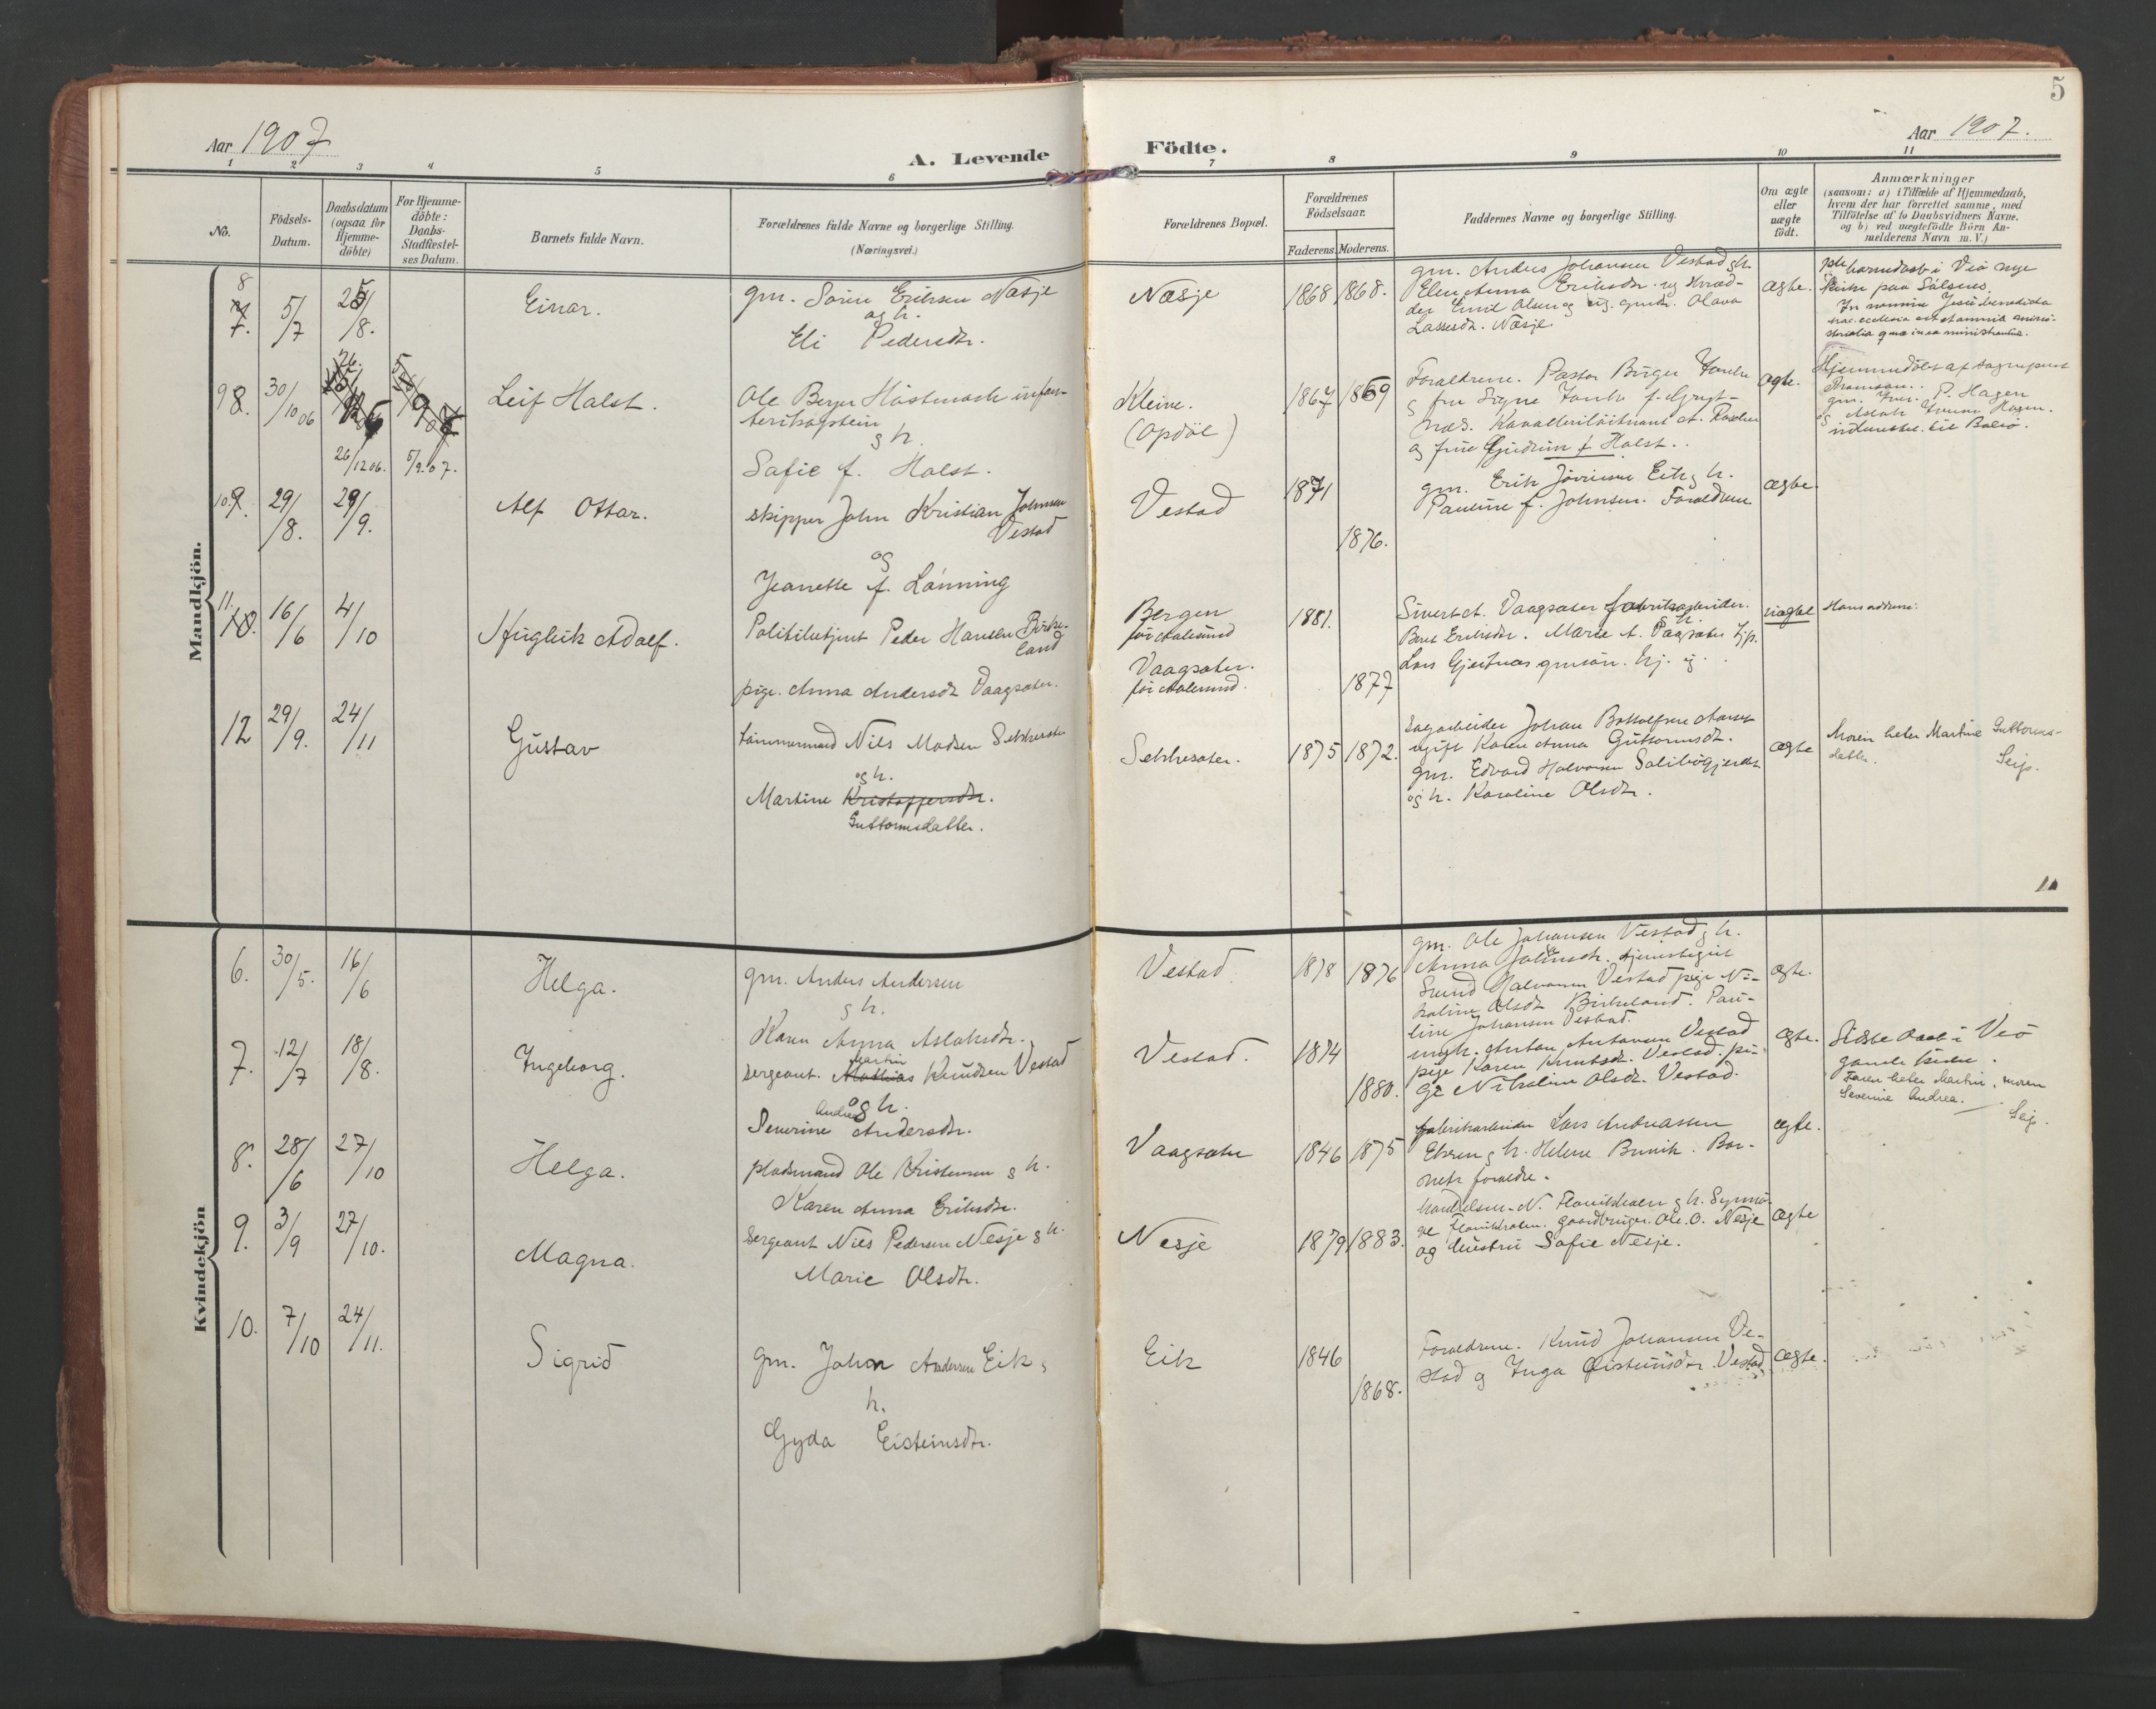 5
Aar 1907
A. Levende Födte.
Aar 1907.
1 2 3 4 5 6 7 8 9 10 11
No.
Födsels-
Datum.
Daabsdatum
(ogsaa for
Hjemme-
döbte)
For Hjemme-
döbte:
Daabs-
Stadfæstel-
ses Datum.
Barnets fulde Navn.
Forældrenes fulde Navne og borgerlige Stilling.
(Næringsvei.)
Forældrenes Bopæl.
Forældrenes
Födselsaar.
Faderens. Moderens.
Faddernes Navne og borgerlige Stilling.
Om ægte
eller
uægte
födt.
Anmærkninger
(saasom: a) i Tilfælde af Hjemmedaab,
hvem der har forrettet samme, med
Tilföielse af to Daabsvidners Navne.
og b) ved uægtefödte Börn An-
melderens Navn m. V.)
Mandkjön.
8
7.
5/7
25/8.
Einar.
gm. Sören Eriksen Næsje
og h.
Eli Pedersdtr.
Næsje
1868 1868.
gm. Anders Johansen Vestad g h.
Elen Anna Eriksdtr. ug
der Emil Olsen og ug. gmdtr. Olava
Lassesdtr. Næsje.
ægte.
i Veö nye
kirke paa Sölsnes.
In nomine Jesu benedicta
98.
30/10 06
26/12 06.
5/9.07.
Leif Halst.
Ole Berger Hustmark infan-
terikaptein
g h.
Sofie f. Halst.
Kleive.
(Opdöl)
1867 1869
Forældrene. Pastor Birger
g fru Signe
Kavalleriløitnant A.
og frue Gudrun f. Halst.
ægte.
Hjemmedöbt af sogneprest
P. Hagen
Hagen.
til Bolsö.
10.9.
29/8.
29/9.
Alf Ottar.
skipper John Kristian Johnsen
Vestad
og
Jeanette f. Lönning
Vestad
1871
1876.
gm. Erik Jörinsen Eik g h.
Pauline f. Johnsen. Forældrene
ægte
11.
10.
16/6
4/10
Hugleik Adolf.
Politibetjent Peder Hansen Birke-
land
pige. Anna Andersdtr Vaagsæter.
Bergen
før Aalesund
Vaagsæter.
før Aalesund.
1881.
1877
Sivert A. Vaagsæter fabrikarbeider.
g h.
Berit Eriksdtr. Marie A. Vaagsæter
Lars Gjertnæs gmsön.
uægte
Hans
12
29/9.
24/11
Gustav
tömmermand Nils Madsen Sekkesæter
og h.
Martine Kristoffersdtr.
Guttormsdatter.
Sekkesæter.
1875 1872.
sagarbeider Johan Bottolfsen
ugift Karen Anna Guttormsdtr.
gm. Edvard Halvorsen
og h. Karoline Olsdtr.
ægte
Moren heter Martine Guttorms-
datter.
Seip.
Kvindekjön
6.
30/5.
16/6
Helga.
gm. Anders Andersen
g h.
Karen Anna Aslaksdtr.
Vestad
1878 1876
gm. Ole Johansen Vestad g h.
Anna
Svend Halvorsen Vestad pige Ni-
koline Olsdtr Birkeland. Pau-
line Johansen Vestad.
ægte.
7.
12/7
18/8.
Ingeborg.
Martin
sergeant. Mathias Knudsen Vestad
og h.
Andrea
Severine Andersdtr.
Vestad.
1874
1880.
ungk. Anton Antonsen Vestad
pige Karen Knutsdtr. Vestad. pi-
ge Nikoline Olsdtr. Vestad.
ægte.
Sidste daab i Veö
gamle kirke.
Faren heter Martin, moren
Severine Andrea.
Seip.
8.
28/6
27/10
Helga.
pladsmand Ole Kristensen g h.
Karen Anna Eriksdtr.
Vaagsæter
1846 1875
fabrikarbeider Lars Andreassen
g h. Helene Brunvik. Bar-
nets foreldre.
ægte.
9.
3/9
27/10.
Magna.
Sergeant Nils Pedersen Nesje g h.
Marie Olsdtr.
Nesje
1879 1883.
handelsm. N. g h. Synnö-
ve gaardbruger. Ole. O. Nesje
og hustru Sofie Nesje.
ægte
10.
7/10
24/11.
Sigrid
gm. John Andersen Eik g
h.
Gyda Eisteinsdtr.
Eik
1846
1868.
Forældrene. Knud Johansen Ve-
stad g Inga Eisteinsdtr. Vestad
ægte.